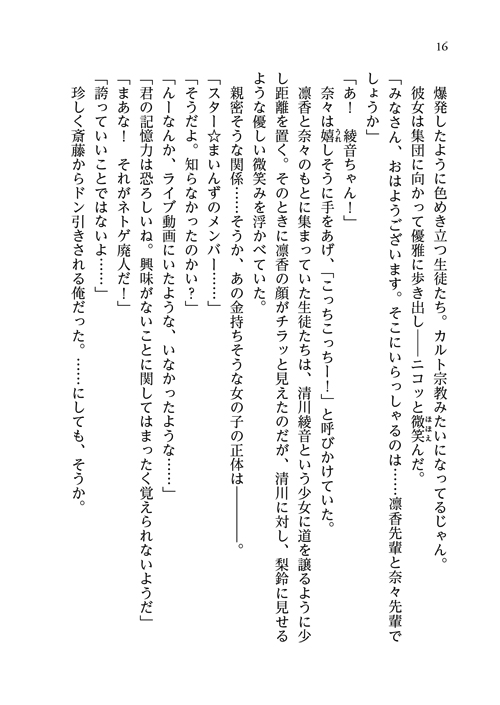 16
爆発したように色めき立つ生徒たち。カルト宗教みたいになってるじゃん。
彼女は集団に向かって優雅に歩き出し――ニコッと微笑んだ。
「みなさん、おはようございます。そこにいらっしゃるのは……凛香先輩と奈々先輩で
しょうか」
「あ！　綾音ちゃん！」
奈々は嬉しそうに手をあげ、「こっちこっちー！」と呼びかけていた。
凛香と奈々のもとに集まっていた生徒たちは、清川綾音という少女に道を譲るように少
し距離を置く。そのときに凛香の顔がチラッと見えたのだが、清川に対し、梨鈴に見せる
ような優しい微笑みを浮かべていた。
親密そうな関係……そうか、あの金持ちそうな女の子の正体は――――。
「スター☆まいんずのメンバー……」
「そうだよ。知らなかったのかい？」
「んーなんか、ライブ動画にいたような、いなかったような……」
「君の記憶力は恐ろしいね。興味がないことに関してはまったく覚えられないようだ」
「まあな！　それがネトゲ廃人だ！」
「誇っていいことではないよ……」
珍しく斎藤からドン引きされる俺だった。……にしても、そうか。